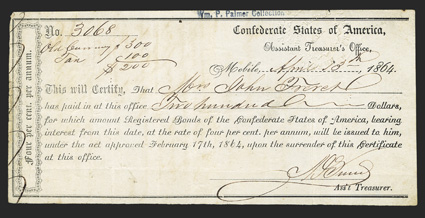 Wm. P. Palmer Collection
No. 3068
Confederate States of America,
Assistant Treasurer's Office,
Old Currency $300
Tax $100
$200
Mobile, April 1864.
This will Certify, That Mrs John
has paid in this office Two hundred Dollars,
for which amount Registered Bonds of the Confederate States of America, bearing
interest from this date, at the rate of four per cent. per annum, will be issued to him,
under the act approved February 17th, 1864, upon the surrender of this Certificate
at this office.
Ass't Treasurer.
Four per cent. per annum.